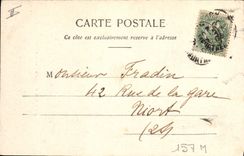 II
CARTE POSTALE
Ce côté est exclusivement réservé à l'adresse
Monsieur Fradin
42 Rue de la gare
Niort
(2S)
157 M